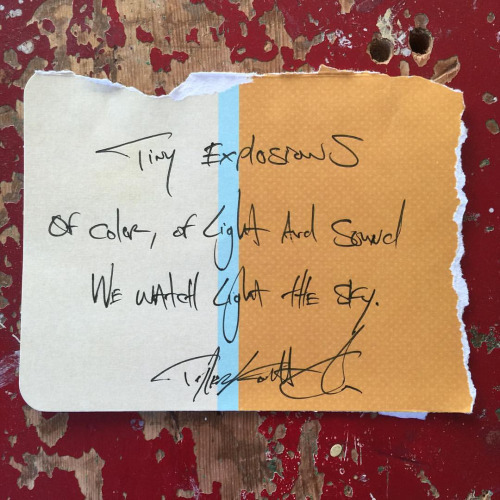 Tiny Explosions
Of color, of light And sound
We watch light the sky.